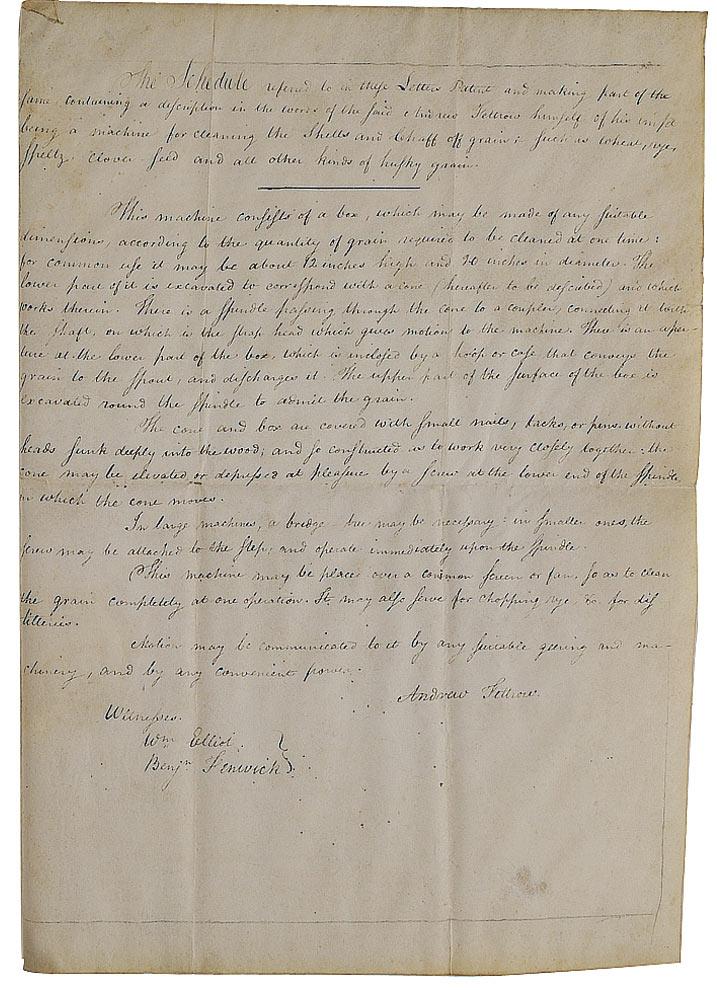 The Schedule referred to in these Letters Patent and making part of the
same, containing a description in the words of the said Andrew Fettrow himself of his imp't
being a machine for cleaning the Shells and Chaff off grain: such as wheat, rye,
Speltz Clover seed and all other kinds of husky grain.
This machine consists of a box, which may be made of any suitable
dimensions, according to the quantity of grain required to be cleaned at one time:
for common use it may be about 12 inches high and 20 inches in diameter. The
lower part of it is excavated to correspond with a cone (hereafter to be described) and which
works therein. There is a spindle passing through the cone to a coupler, connecting it with
the shaft, on which is the strap head which gives motion to the machine. There is an aper-
ture at the lower part of the box, which is inclosed by a hoop or case that conveys the
grain to the spout, and discharges it. The upper part of the surface of the box is
excavated round the spindle to admit the grain.
The cone and box are covered with small nails, tacks, or pins without
heads sunk deeply into the wood; and so constructed as to work very closely together: the
cone may be elevated or depressed at pleasure by a screw at the lower end of the spindle
on which the cone moves.
In large machines, a bridge tree may be necessary: in smaller ones, the
screw may be attached to the step, and operate immediately upon the spindle.
This machine may be placed over a common screen or fan, so as to clean
the grain completely at one operation. It may also serve for chopping rye &c. for dis
tilleries.
Motion may be communicated to it by any suitable geering and ma-
chinery, and by any convenient power.
Andrew Fettrow.
Witnesses.
Wm Elliot.
Benjn Fenwick